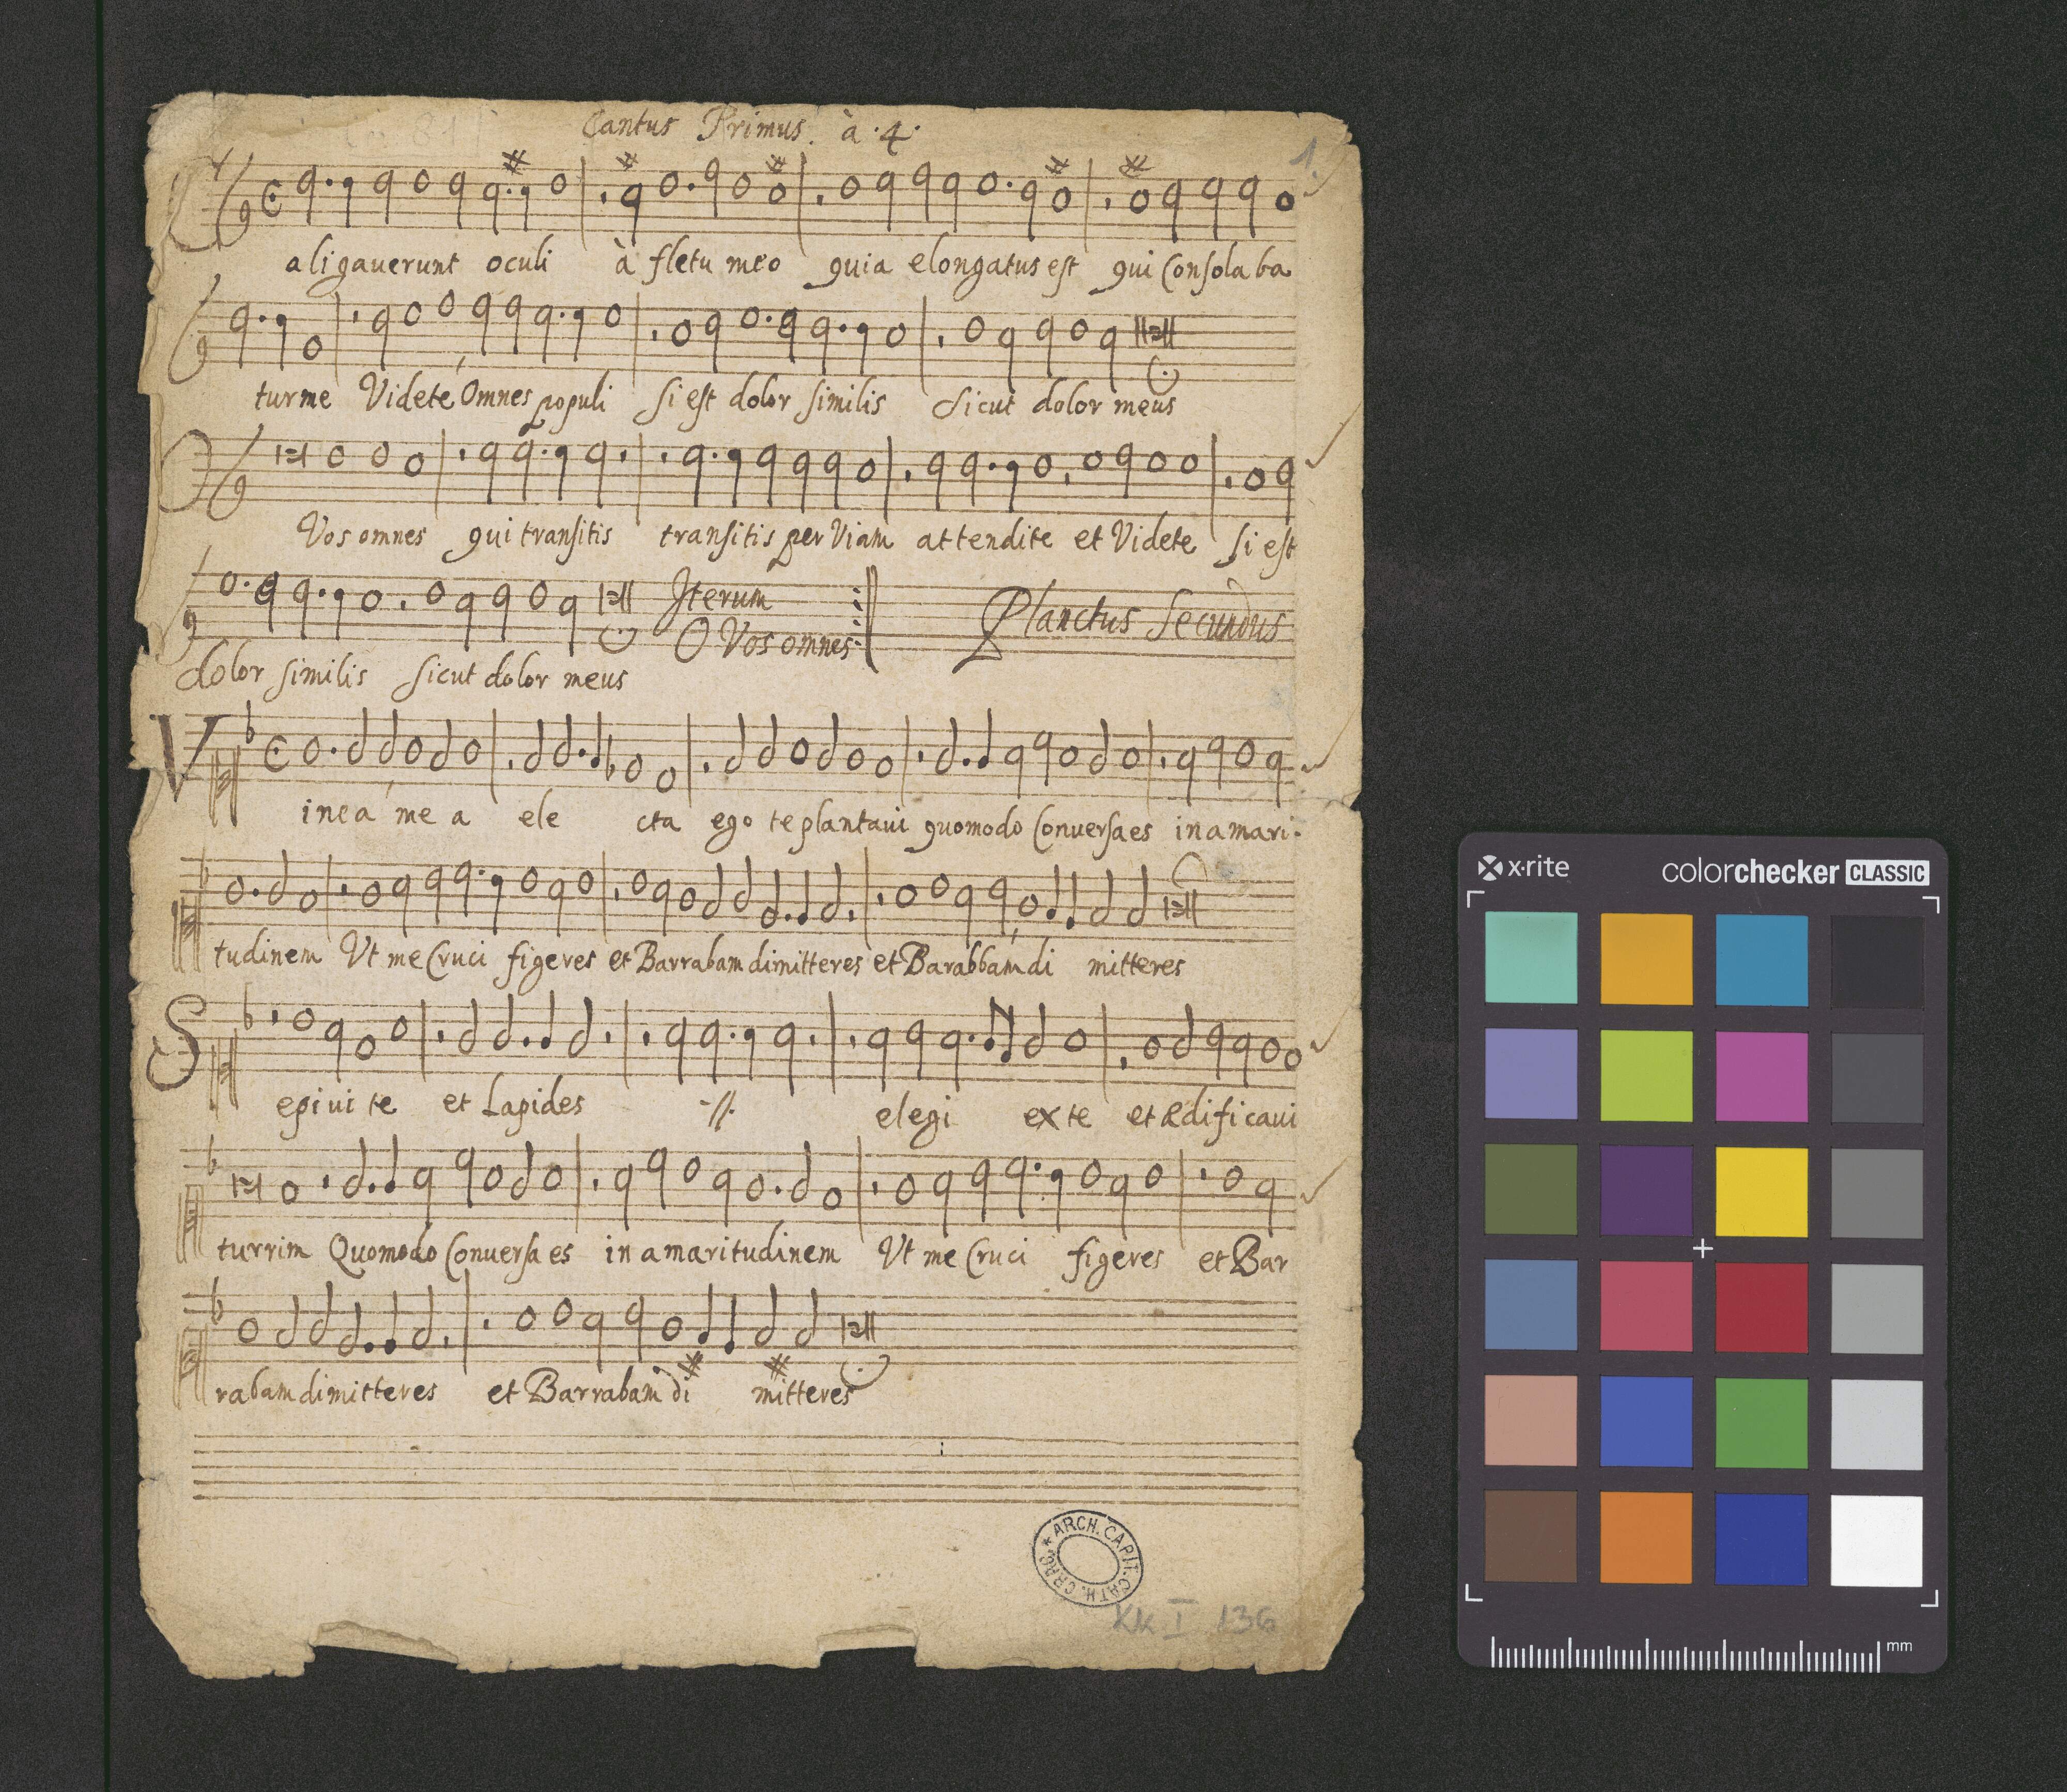 Cantus Primus. à .4.
1.
C
aligauerunt oculi à fletu meo quia elongatus est qui Consolaba
turme Videte Omnes populi si est dolor similis Sicut dolor meus
O
Vos omnes qui transitis transitis per Viam attendite et Videte si est
Iterum
O Vos omnes
Planctus Secundus
dolor similis sicut dolor meus
V
inea mea ele cta ego te plantaui quomodo Conuersa es in amari.
tudinem Vt me Cruci figeres et Barrabam dimitteres et Barabbam di mitteres
S
epiui te et Lapides -//- elegi ex te et ædificaui
turrim Quomodo Conuersa es in amaritudinem Vt me Cruci figeres et Bar
rabam dimitteres et Barrabam di mitteres
* ARCH. CAPIT. CATH. CRAC.
KK I 136
x·rite
colorchecker CLASSIC
mm